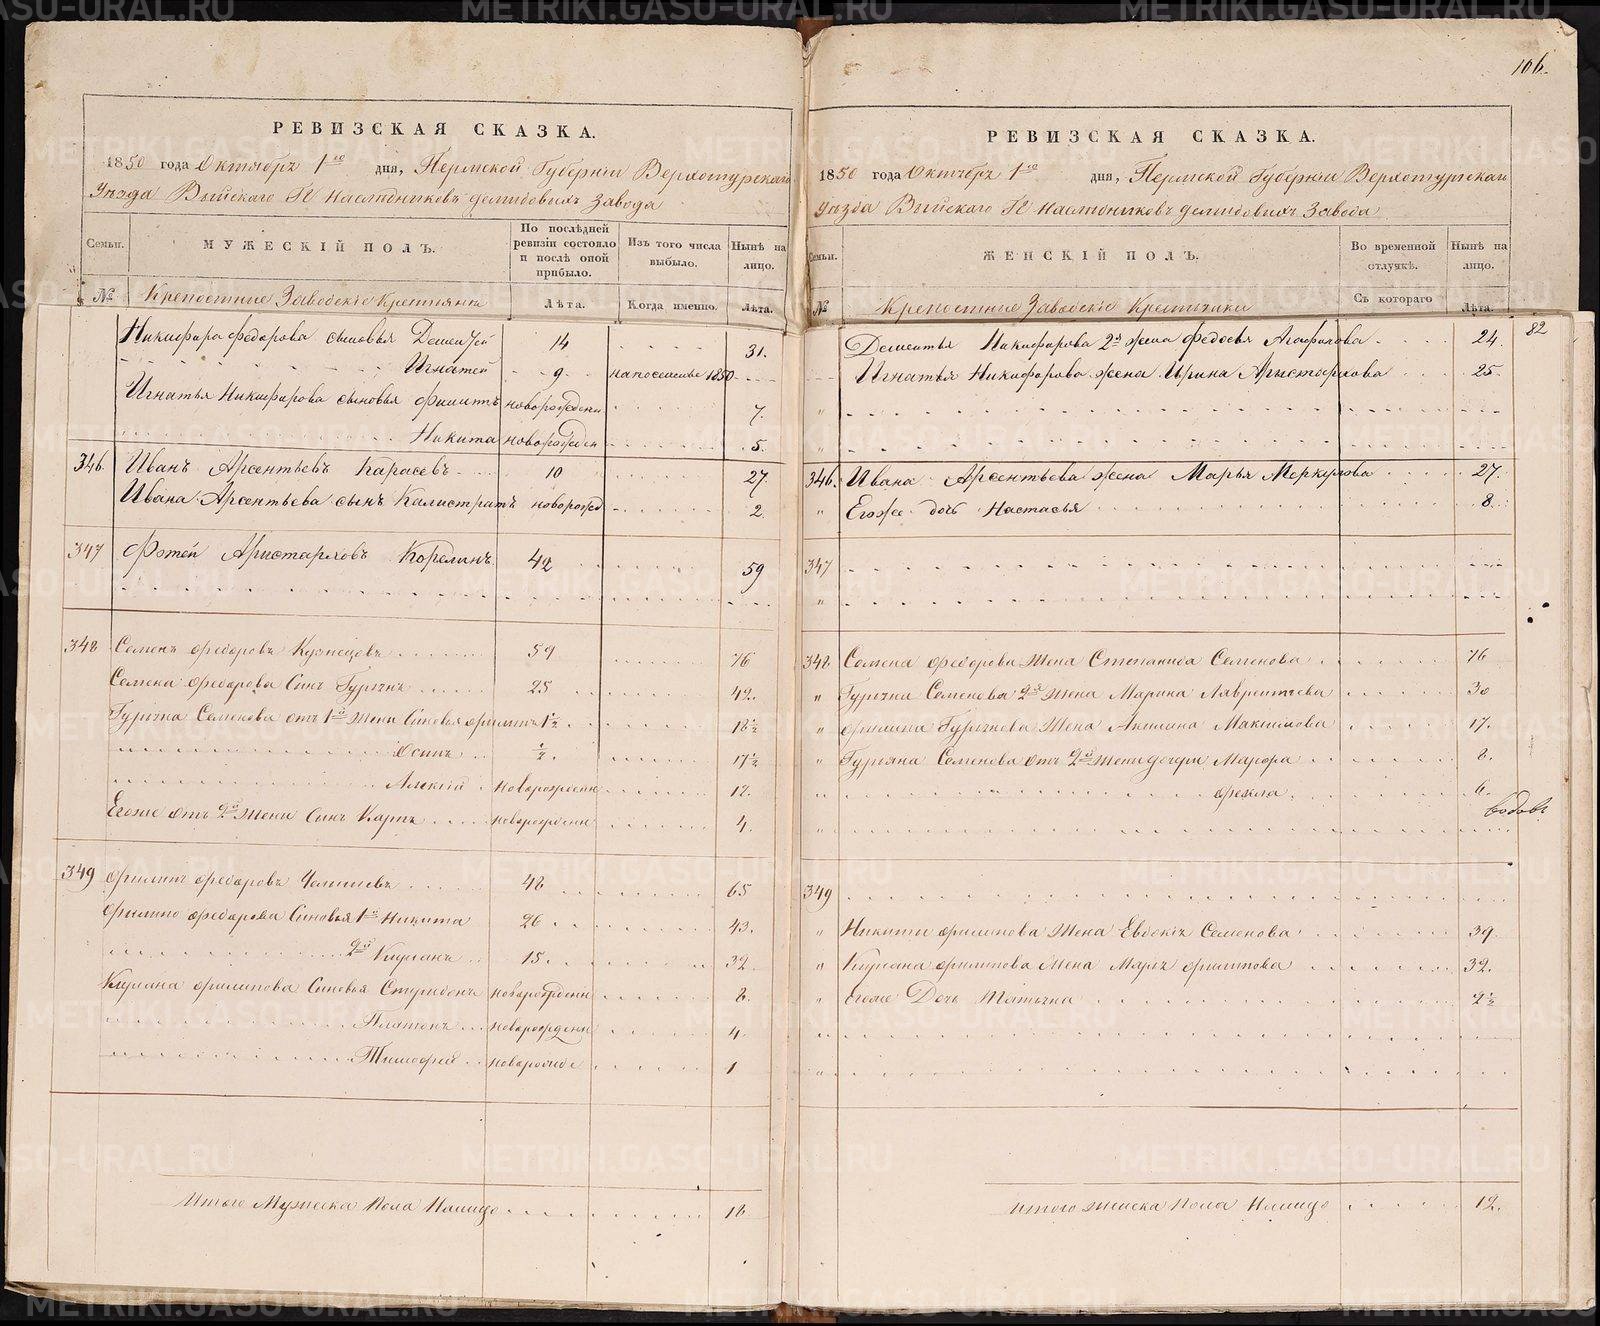 106.
РЕВИЗСКАЯ СКАЗКА.
1850 года Октября 1го дня, Пермской Губернiи Верхотурскаго
Уезда Выйскаго Гг. Наследниковъ Демидовыхъ Завода
Семьи. МУЖЕСКIЙ ПОЛЪ. По последней ревизiи состояло и после оной прибыло. Изъ того числа выбыло. Ныне на лицо.
№ Крепостные Заводскiе Крестьяна Лета. Когда именно. Лета.
Никифора Федорова сыновья Дементей 14 31.
Игнатей 9 на поселенье 1850
Игнатья Никифорова сыновья Филиптъ новорожден 7.
Никита новорожден 5.
346. Иванъ Арсентьевъ Карасевъ 10 27.
Ивана Арсентьева сынъ Калистратъ новорожд 2.
347 Фотей Аристарховъ Корелинъ 42 59
348 Семенъ Федоровъ Кузнецовъ 59 76
Семена Федорова Сынъ Гурьянъ 25 42.
Гурьяна Семенова отъ 1й Жены Сыновья Филипъ 1½ 18½
Осипъ ½. 17½
Алексiй новорожденн 12.
Егоже отъ 2й Жены Сынъ Карпъ новорожденн 4.
349 Филипъ Федоровъ 48 65
Филипа Федорова Сыновья 1й Никита 26 43.
2й Кирьянъ 15. 32
Кирьяна Филипова Сыновья новорожденн 8.
Платонъ новорожденн 4.
Тимофей новорожде 1
Итого Мужеска Пола Налицо 18
РЕВИЗСКАЯ СКАЗКА.
1850 года Октября 1го дня, Пермской Губернiи Верхотурскаго
Уезда Выйскаго Гг. Наследниковъ Демидовыхъ Завода
Семьи. ЖЕНСКIЙ ПОЛЪ. Во временной отлучке. Ныне на лицо.
№ Крепостные Заводскiе Крестьянки Съ котораго Лета.
82
Дементья Никифорова 2я жена Федосья Агафонова 24.
Игнатья Никифорова жена Ирина Арыстархова 25.
346. Ивана Арсентьева жена Марья Меркулова 27.
" Егоже дочь Настасья 8.
347
348. Семена Федорова Жена Степанида Семенова 76
" Гурьяна Семенова 2я Жена Марина Лаврентьева 30
" Филипа Гурьянова Жена Акилина Максимова 17.
" Гурьяна Семенова отъ 2й Жены дочери Марфа 8.
" Фекла 6.
вдовъ
349
" Никиты Филипова Жена Евдокiя Семенова 39.
" Кирьяна Филипова Жена Марья Филипова 32.
" Егоже Дочь Татьяна 2½
Итого Женска Пола Налицо 12.
METRIKI.GASO-URAL.RU